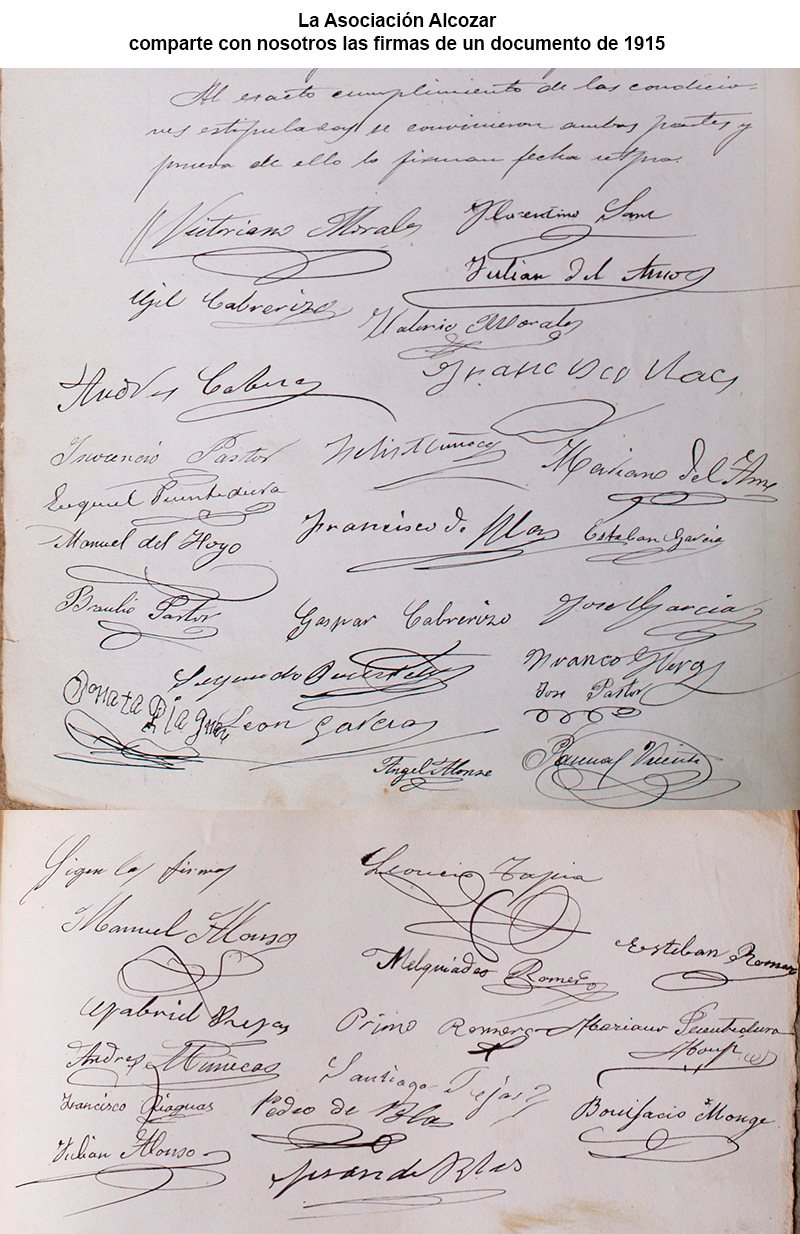 La Asociación Alcozar
comparte con nosotros las firmas de un documento de 1915
Al exacto cumplimiento de las condicio-
nes estipuladas se convinieron ambas partes y
prueva de ello lo firman fecha utpra.
Victoriano Morales Florentino Sanz
Julian del Amo
Gil Cabrerizo
Valerio Morales
Andres Cabrerizo Francisco Blas
Inocencio Pastor Felix Muñoz Mariano del Amo
Ezequiel Puentedura
Manuel del Hoyo Francisco de Blas Esteban Garcia
Braulio Pastor Gaspar Cabrerizo Jose Garcia
Segundo
Jose Pastor
Donata Riaguas Leon Garcia
Angel Alonso Pascual Vicente
Sigen las firmas Leoncio Tapia
Manuel Alonso Esteban Romero
Melquiades Romero
Gabriel Primo Romero Mariano Puentedura
Andres Muñecas Santiago Tejas
Francisco Riaguas Pedro de Bla Bonifacio Monge
Julian Alonso
Juan de Blas